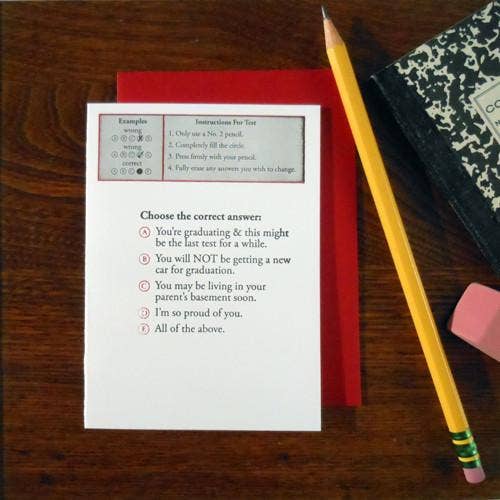 Examples
wrong
wrong
correct
Instructions For Test
1. Only use a No. 2 pencil.
2. Completely fill the circle.
3. Press firmly wish your pencil.
4. Fully erase any answers you wish to change.
Choose the correct answer:
A You're graduating & this might
be the last test for a while.
B You will NOT be getting a new
car for graduation.
C You may be living in your
parent's basement soon.
D I'm so proud of you.
E All of the above.